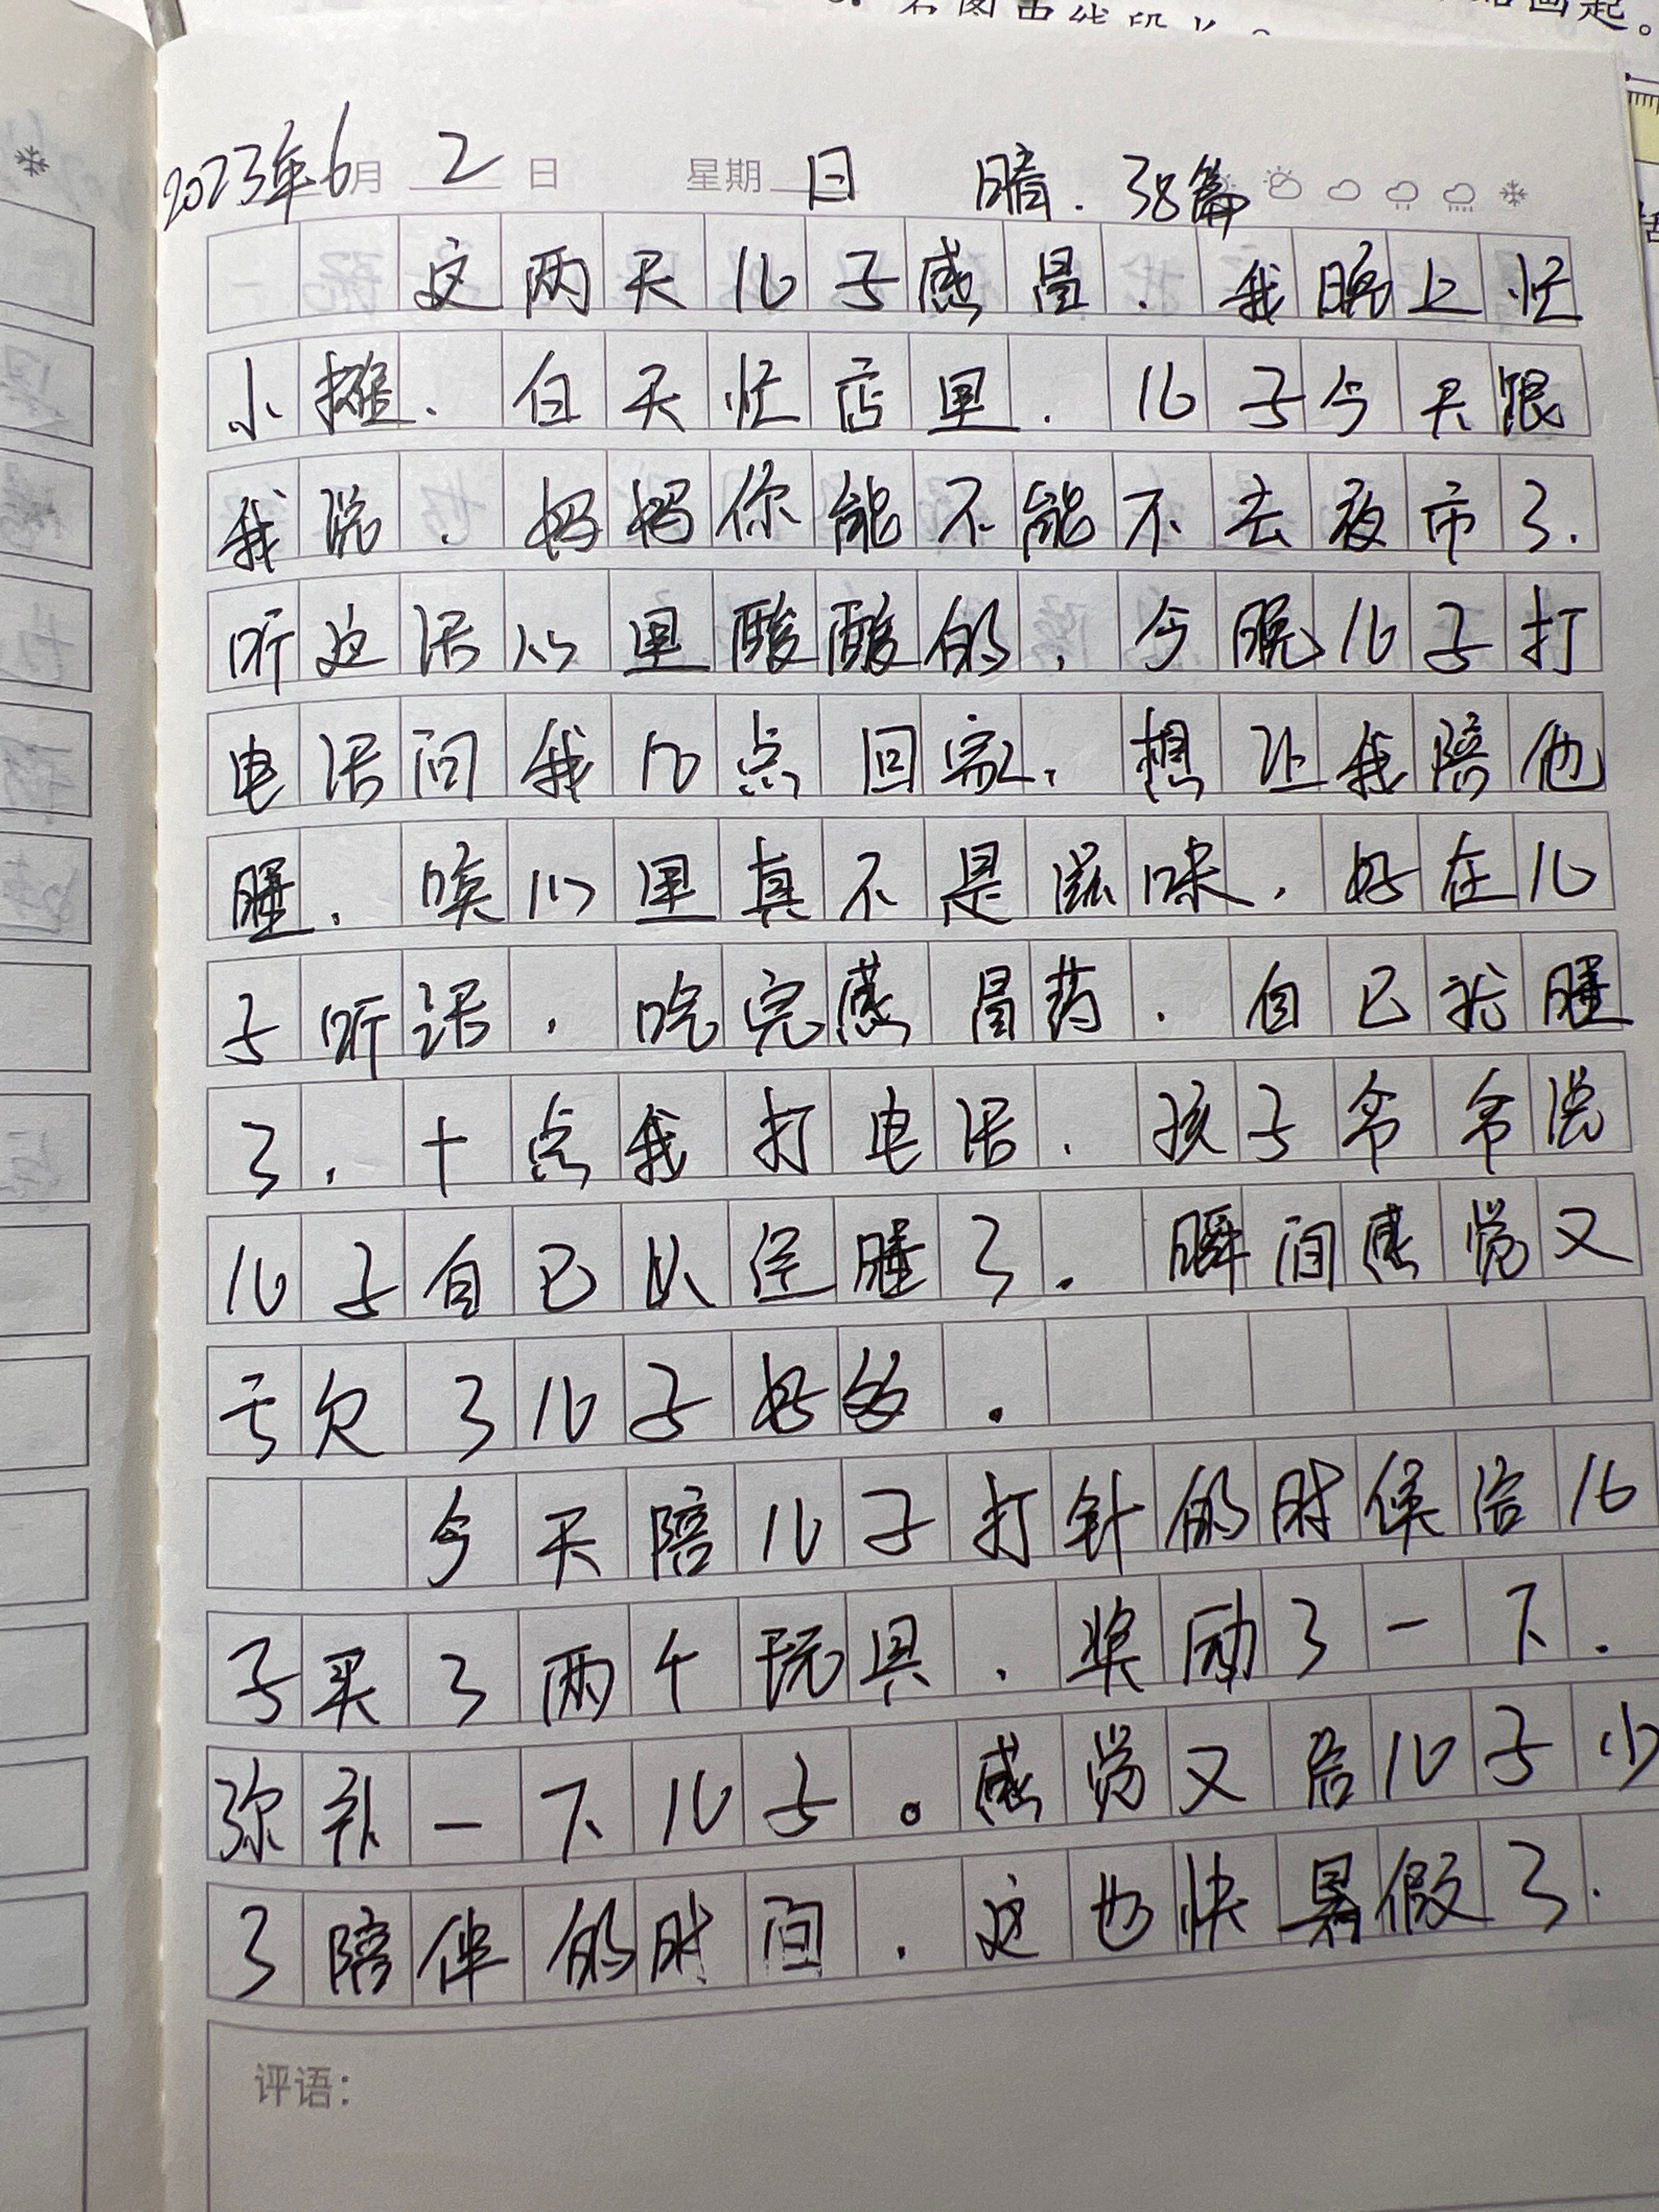 2023年6月 2 日 星期 日 晴. 38篇
这两天儿子感冒. 我晚上忙
小摊. 白天忙店里. 儿子今天跟
我说. 妈妈你能不能不去夜市了.
听这话心里酸酸的. 今晚儿子打
电话问我几点回家. 想让我陪他
睡. 唉心里真不是滋味. 好在儿
子听话. 吃完感冒药. 自己就睡
了. 十点我打电话. 孩子爷爷说
儿子自己以经睡了. 瞬间感觉又
亏欠了儿子好多.
今天陪儿子打针的时候给儿
子买了两个玩具. 奖励了一下.
弥补一下儿子。感觉又给儿子少
了陪伴的时间. 这也快暑假了.
评语: